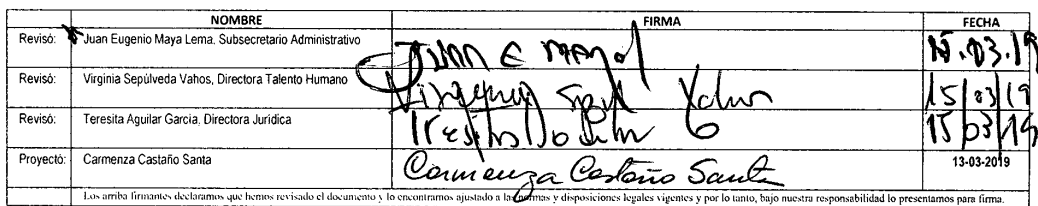 NOMBRE FIRMA FECHA
Revisó: Juan Eugenio Maya Lema. Subsecretario Administrativo JUAN E MAYA 15.03.19
Revisó: Virginia Sepúlveda Vahos, Directora Talento Humano 15/03/19
Revisó: Teresita Aguilar Garcia, Directora Jurídica 15/03/19
Proyectó: Carmenza Castaño Santa Carmenza Castaño Santa 13-03-2019
Los arriba firmantes declaramos que hemos revisado el documento y lo encontramos ajustado a las normas y disposiciones legales vigentes y por lo tanto, bajo nuestra responsabilidad lo presentamos para firma.